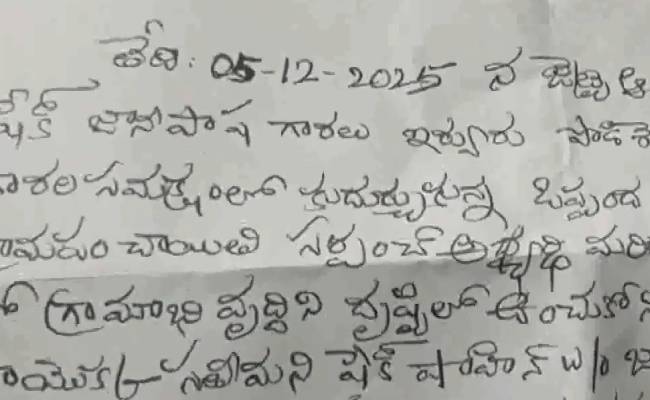 తేది: 05-12-2025 న జెట్టి ఆ
షేక్ జానీపాష గారలు ఇర్వురు పాడిశె
గారల సమక్షంలో కుదుర్చుకున్న ఒప్పంద
గ్రామపంచాయితి సర్పంచ్ అభ్యర్థి మరి
గ్రామాభివృద్దిని దృష్టిలో ఉంచుకొని
సతీమని షేక్ షాహిన్ w/o జా